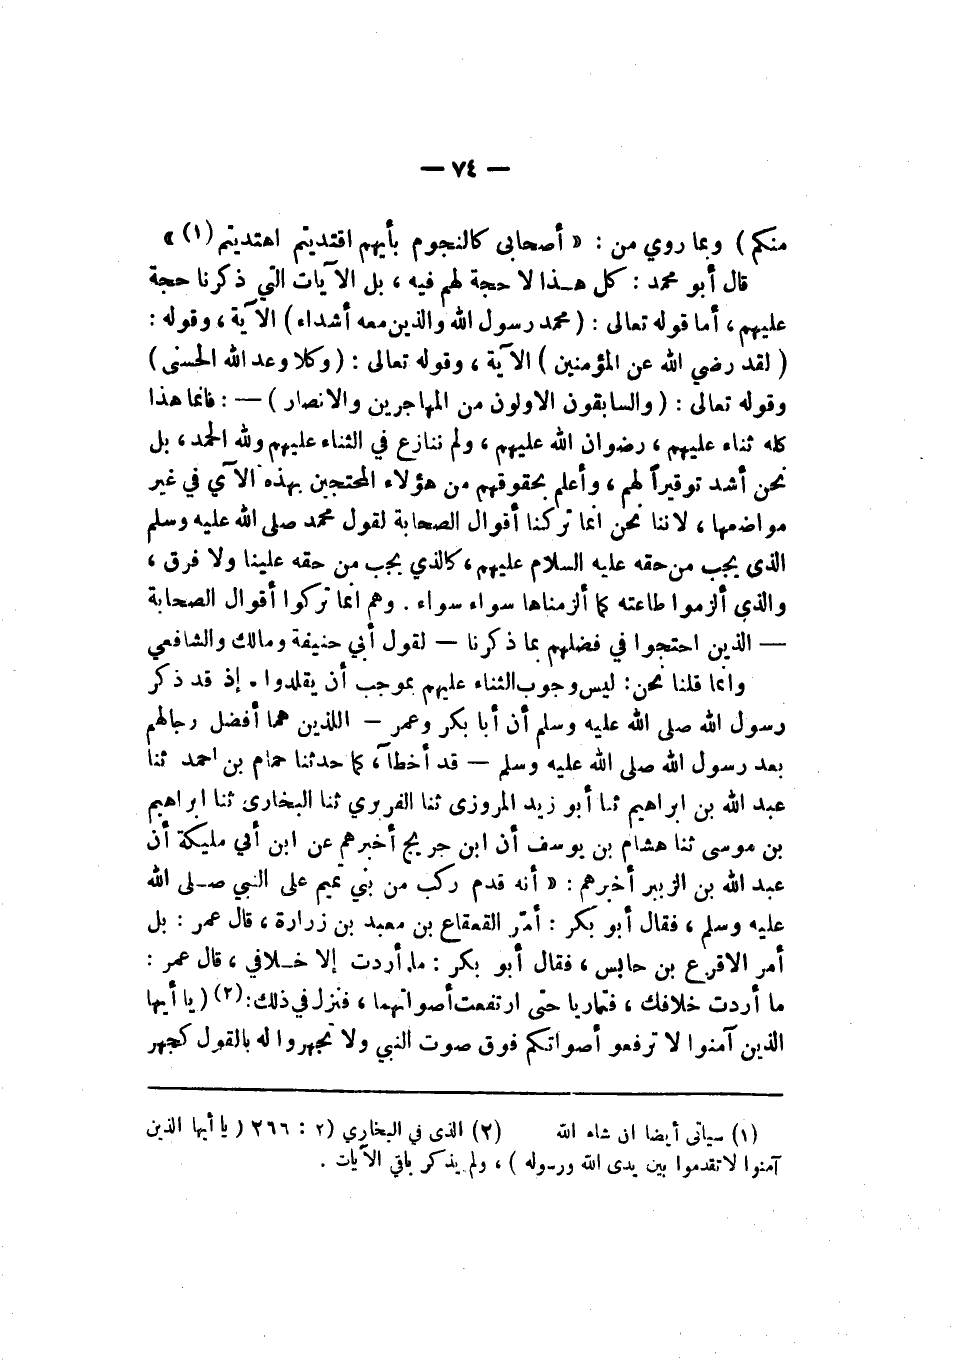 — ٧٤ —
منكم ) وبما روي من : « أصحابى كالنجوم بأيهم اقتديتم اهتديتم (١) »
قال أبو محمد : كل هـذا لا حجة لهم فيه ، بل الآيات التي ذكرنا حجة
عليهم ، أما قوله تعالى : ( محمد رسول الله والذين معه أشداء ) الآية ، وقوله :
( لقد رضي الله عن المؤمنين ) الآية ، وقوله تعالى : ( وكلا وعد الله الحسنى )
وقوله تعالى : ( والسابقون الاولون من المهاجرين والانصار ) — : فانما هذا
كله ثناء عليهم ، رضوان الله عليهم ، ولم ننازع في الثناء عليهم ولله الحمد ، بل
نحن أشد توقيراً لهم ، وأعلم بحقوقهم من هؤلاء المحتجين بهذه الآي في غير
مواضعها ، لاننا نحن انما تركنا أقوال الصحابة لقول محمد صلى الله عليه وسلم
الذى يجب من حقه عليه السلام عليهم ، كالذي يجب من حقه علينا ولا فرق ،
والذي ألزموا طاعته كما ألزمناها سواء سواء . وهم انما تركوا أقوال الصحابة
— الذين احتجوا في فضلهم بما ذكرنا — لقول أبي حنيفة ومالك والشافعي
وانما قلنا نحن : ليس وجوب الثناء عليهم بموجب أن يقلدوا . إذ قد ذكر
رسول الله صلى الله عليه وسلم أن أبا بكر وعمر — اللذين هما أفضل رجالهم
بعد رسول الله صلى الله عليه وسلم — قد أخطآ ، كما حدثنا حمام بن احمد ثنا
عبد الله بن ابراهيم ثنا أبو زيد المروزى ثنا الفربري ثنا البخارى ثنا ابراهيم
بن موسى ثنا هشام بن يوسف أن ابن جريج أخبرهم عن ابن أبي مليكة أن
عبد الله بن الزبير أخبرهم : « أنه قدم ركب من بني تميم على النبي صـلى الله
عليه وسلم ، فقال أبو بكر : أمّر القعقاع بن معبد بن زرارة ، قال عمر : بل
أمر الاقرع بن حابس ، فقال أبو بكر : ما أردت إلا خـلافي ، قال عمر :
ما أردت خلافك ، فتماريا حتى ارتفعت أصواتهما ، فنزل في ذلك : (٢) ( يا أيها
الذين آمنوا لا ترفعو أصواتكم فوق صوت النبي ولا تجهروا له بالقول كجهر
(١) سيأتى أيضا ان شاء الله (٢) الذى في البخاري (٢ : ٢٦٦ ( يا أيها الذين
آمنوا لا تقدموا بين يدى الله ورسوله ) ، ولم يذكر باقي الآيات .